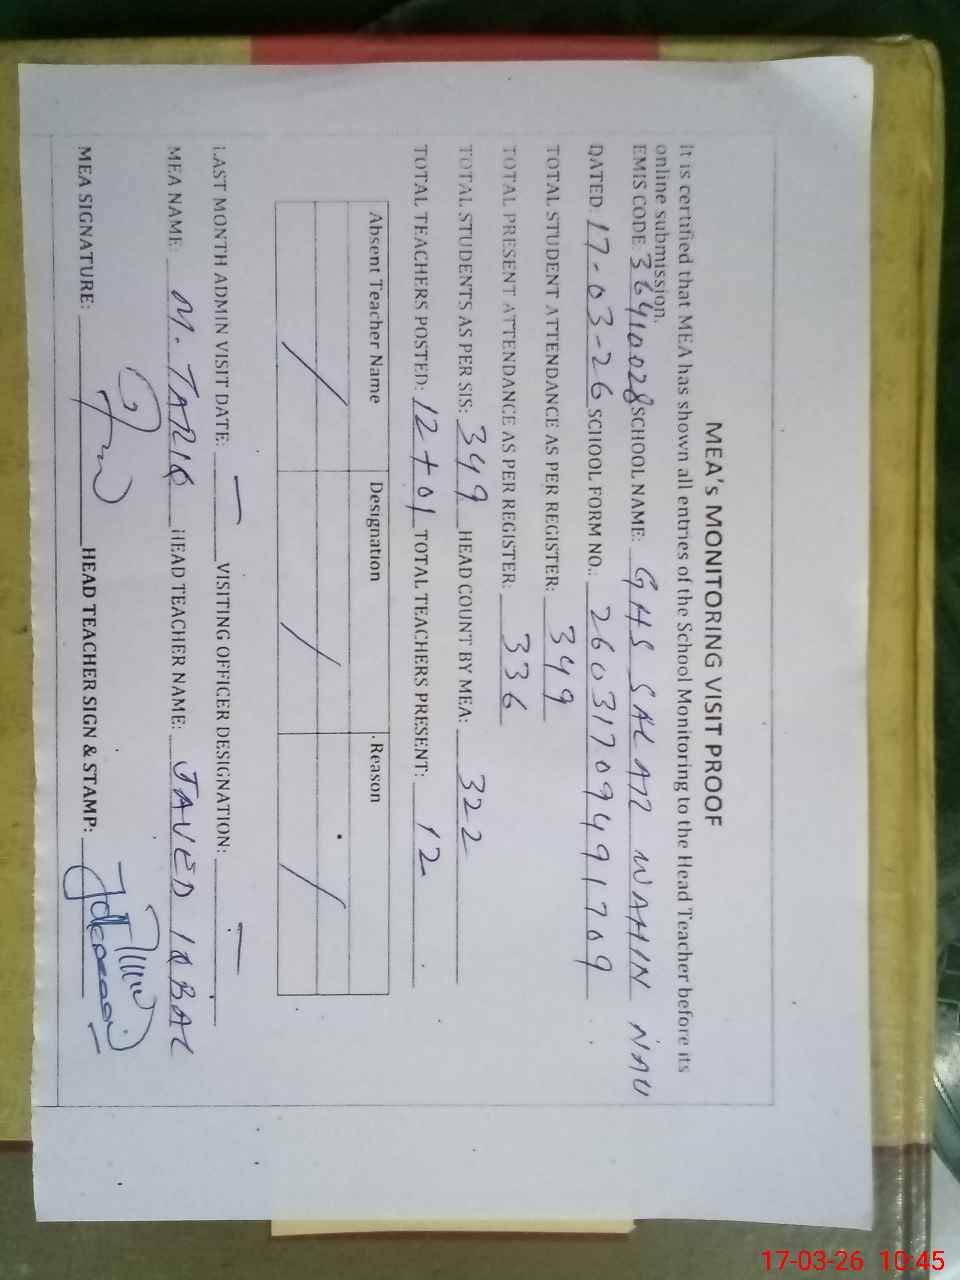 MEA's MONITORING VISIT PROOF
It is certified that MEA has shown all entries of the School Monitoring to the Head Teacher before its
online submission.
EMIS CODE: 36410028 SCHOOL NAME: GHS SALAR WAHIN NAU
DATED: 17-03-26 SCHOOL FORM NO.: 26031709491709
TOTAL STUDENT ATTENDANCE AS PER REGISTER: 349
TOTAL PRESENT ATTENDANCE AS PER REGISTER: 336
TOTAL STUDENTS AS PER SIS: 349 HEAD COUNT BY MEA: 322
TOTAL TEACHERS POSTED: 12+01 TOTAL TEACHERS PRESENT: 12
Absent Teacher Name Designation Reason
/ / /
LAST MONTH ADMIN VISIT DATE: — VISITING OFFICER DESIGNATION: —
MEA NAME: M. TARIQ HEAD TEACHER NAME: JAVED IQBAL
MEA SIGNATURE: HEAD TEACHER SIGN & STAMP:
17-03-26 10:45